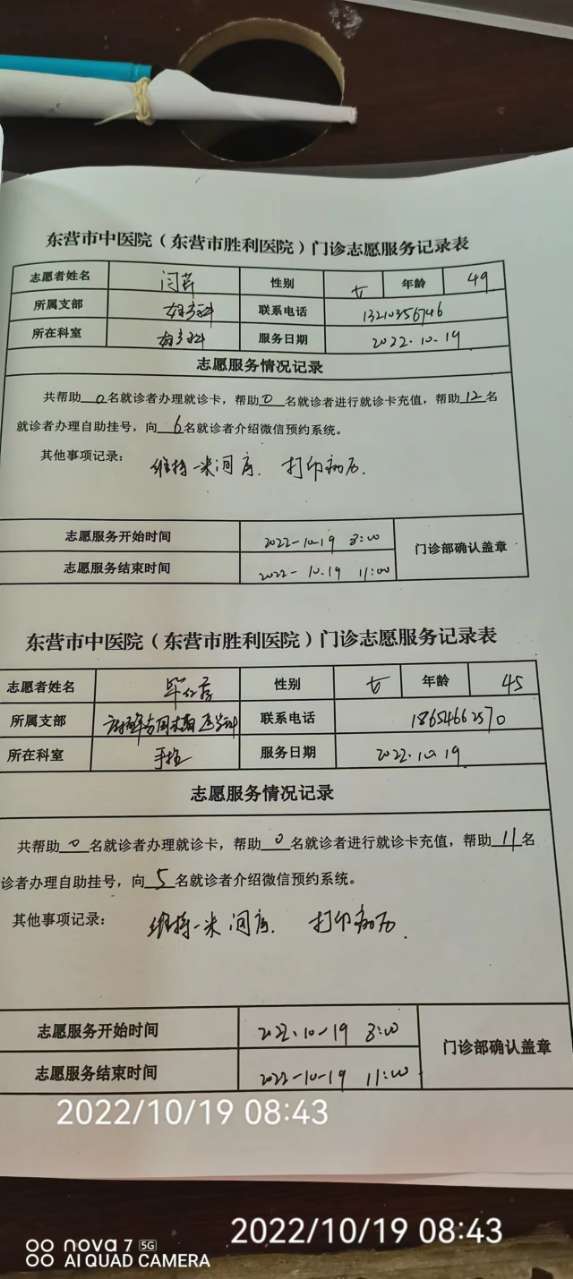 东营市中医院（东营市胜利医院）门诊志愿服务记录表
志愿者姓名 闫芹 性别 女 年龄 49
所属支部 妇产科 联系电话 13210356746
所在科室 妇产科 服务日期 2022.10.19
志愿服务情况记录
共帮助 0 名就诊者办理就诊卡，帮助 0 名就诊者进行就诊卡充值，帮助 12 名
就诊者办理自助挂号，向 6 名就诊者介绍微信预约系统。
其他事项记录： 维持一米间序. 打印病历.
志愿服务开始时间 2022-10-19 8:00 门诊部确认盖章
志愿服务结束时间 2022-10.19 11:00
东营市中医院（东营市胜利医院）门诊志愿服务记录表
志愿者姓名 性别 女 年龄 45
所属支部 联系电话 18654662570
所在科室 服务日期 2022.10.19
志愿服务情况记录
共帮助 0 名就诊者办理就诊卡，帮助 0 名就诊者进行就诊卡充值，帮助 11 名
诊者办理自助挂号，向 5 名就诊者介绍微信预约系统。
其他事项记录： 维持一米间序. 打印病历.
志愿服务开始时间 2022.10-19 8:00 门诊部确认盖章
志愿服务结束时间 2022-10-19 11:00
2022/10/19 08:43
2022/10/19 08:43
nova 7 5G
AI QUAD CAMERA